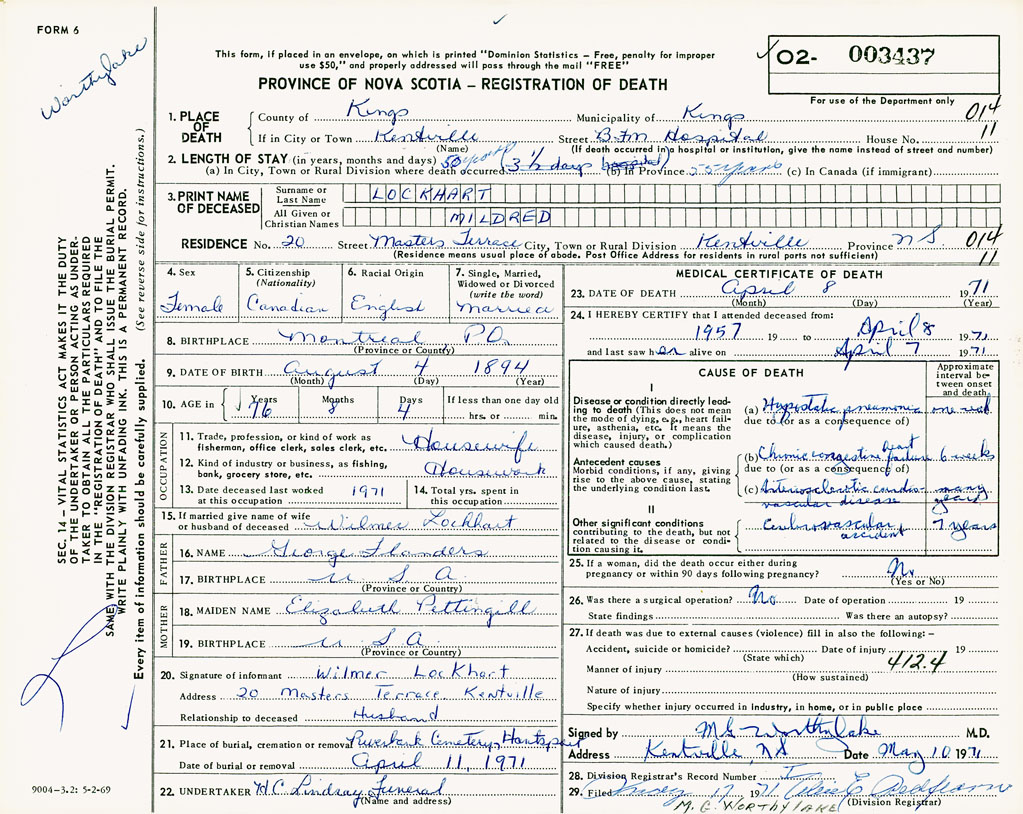 FORM 6
Worthylake
This form, if placed in an envelope, on which is printed "Dominion Statistics – Free, penalty for improper
use $50," and properly addressed will pass through the mail "FREE"
PROVINCE OF NOVA SCOTIA – REGISTRATION OF DEATH
02- 003437
For use of the Department only
1. PLACE OF DEATH County of Kings Municipality of Kings 014
If in City or Town Kentville Street B.F.M. Hospital House No. 11
(Name) (If death occurred in a hospital or institution, give the name instead of street and number)
2. LENGTH OF STAY (in years, months and days) 50 years (3 1/2 days hospital)
(a) In City, Town or Rural Division where death occurred (b) In Province 55 years (c) In Canada (if immigrant)
3. PRINT NAME OF DECEASED Surname or Last Name LOCKHART
All Given or Christian Names MILDRED
RESIDENCE No. 20 Street Masters Terrace City, Town or Rural Division Kentville Province N S 014
(Residence means usual place of abode. Post Office Address for residents in rural parts not sufficient) 11
4. Sex Female
5. Citizenship (Nationality) Canadian
6. Racial Origin English
7. Single, Married, Widowed or Divorced (write the word) Married
8. BIRTHPLACE Montreal P.Q.
(Province or Country)
9. DATE OF BIRTH August 4 1894
(Month) (Day) (Year)
10. AGE in Years 76 Months 8 Days 4 If less than one day old
hrs. or min.
OCCUPATION
11. Trade, profession, or kind of work as fisherman, office clerk, sales clerk, etc. Housewife
12. Kind of industry or business, as fishing, bank, grocery store, etc. Housework
13. Date deceased last worked at this occupation 1971
14. Total yrs. spent in this occupation
15. If married give name of wife or husband of deceased Wilmer Lockhart
FATHER
16. NAME George Flanders
17. BIRTHPLACE U S A
(Province or Country)
MOTHER
18. MAIDEN NAME Elizabeth Pettingill
19. BIRTHPLACE U S A
(Province or Country)
20. Signature of informant Wilmer Lockhart
Address 20 Masters Terrace Kentville
Relationship to deceased Husband
21. Place of burial, cremation or removal Riverbank Cemetery, Hantsport
Date of burial or removal April 11, 1971
22. UNDERTAKER H.C. Lindsay Funeral
(Name and address)
MEDICAL CERTIFICATE OF DEATH
23. DATE OF DEATH April 8 1971
(Month) (Day) (Year)
24. I HEREBY CERTIFY that I attended deceased from:
1957 19 to April 8 1971
and last saw her alive on April 7 1971
CAUSE OF DEATH
Approximate interval between onset and death
I
Disease or condition directly leading to death (This does not mean the mode of dying, e.g., heart failure, asthenia, etc. It means the disease, injury, or complication which caused death.)
(a) Hypostatic pneumonia one wk
due to (or as a consequence of)
Antecedent causes
Morbid conditions, if any, giving rise to the above cause, stating the underlying condition last.
(b) Chronic congestive heart failure 6 weeks
due to (or as a consequence of)
(c) Arteriosclerotic cardio-vascular disease many years
II
Other significant conditions contributing to the death, but not related to the disease or condition causing it.
Cerebrovascular accident 7 years
25. If a woman, did the death occur either during pregnancy or within 90 days following pregnancy? No
(Yes or No)
26. Was there a surgical operation? No Date of operation 19
State findings Was there an autopsy?
27. If death was due to external causes (violence) fill in also the following:–
Accident, suicide or homicide? Date of injury 19
(State which)
Manner of injury 412.4
(How sustained)
Nature of injury
Specify whether injury occurred in industry, in home, or in public place
Signed by M G Worthylake M.D.
Address Kentville, NS Date May 10 1971
28. Division Registrar's Record Number
29. Filed May 17 1971
M. G. WORTHYLAKE (Division Registrar)
SEC. 14 – VITAL STATISTICS ACT MAKES IT THE DUTY
OF THE UNDERTAKER OR PERSON ACTING AS UNDER-
TAKER TO OBTAIN ALL THE PARTICULARS REQUIRED
IN THE "REGISTRATION OF DEATH" AND TO FILE THE
SAME WITH THE DIVISION REGISTRAR WHO SHALL ISSUE THE BURIAL PERMIT.
WRITE PLAINLY WITH UNFADING INK. THIS IS A PERMANENT RECORD.
Every item of information should be carefully supplied. (See reverse side for instructions.)
9004–3.2: 5-2-69